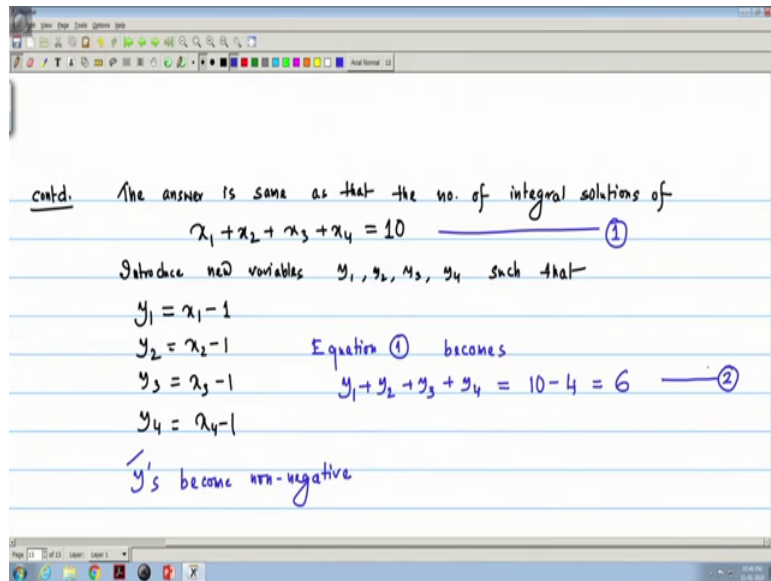 View Page Tools Options Help
Arial Normal 12
contd. The answer is same as that the no. of integral solutions of
x₁ + x₂ + x₃ + x₄ = 10 ①
Introduce new variables y₁, y₂, y₃, y₄ such that
y₁ = x₁ - 1
y₂ = x₂ - 1 Equation ① becomes
y₃ = x₃ - 1 y₁ + y₂ + y₃ + y₄ = 10 - 4 = 6 ②
y₄ = x₄ - 1
y's become non-negative
Page 13 of 13 Layer: Layer 1